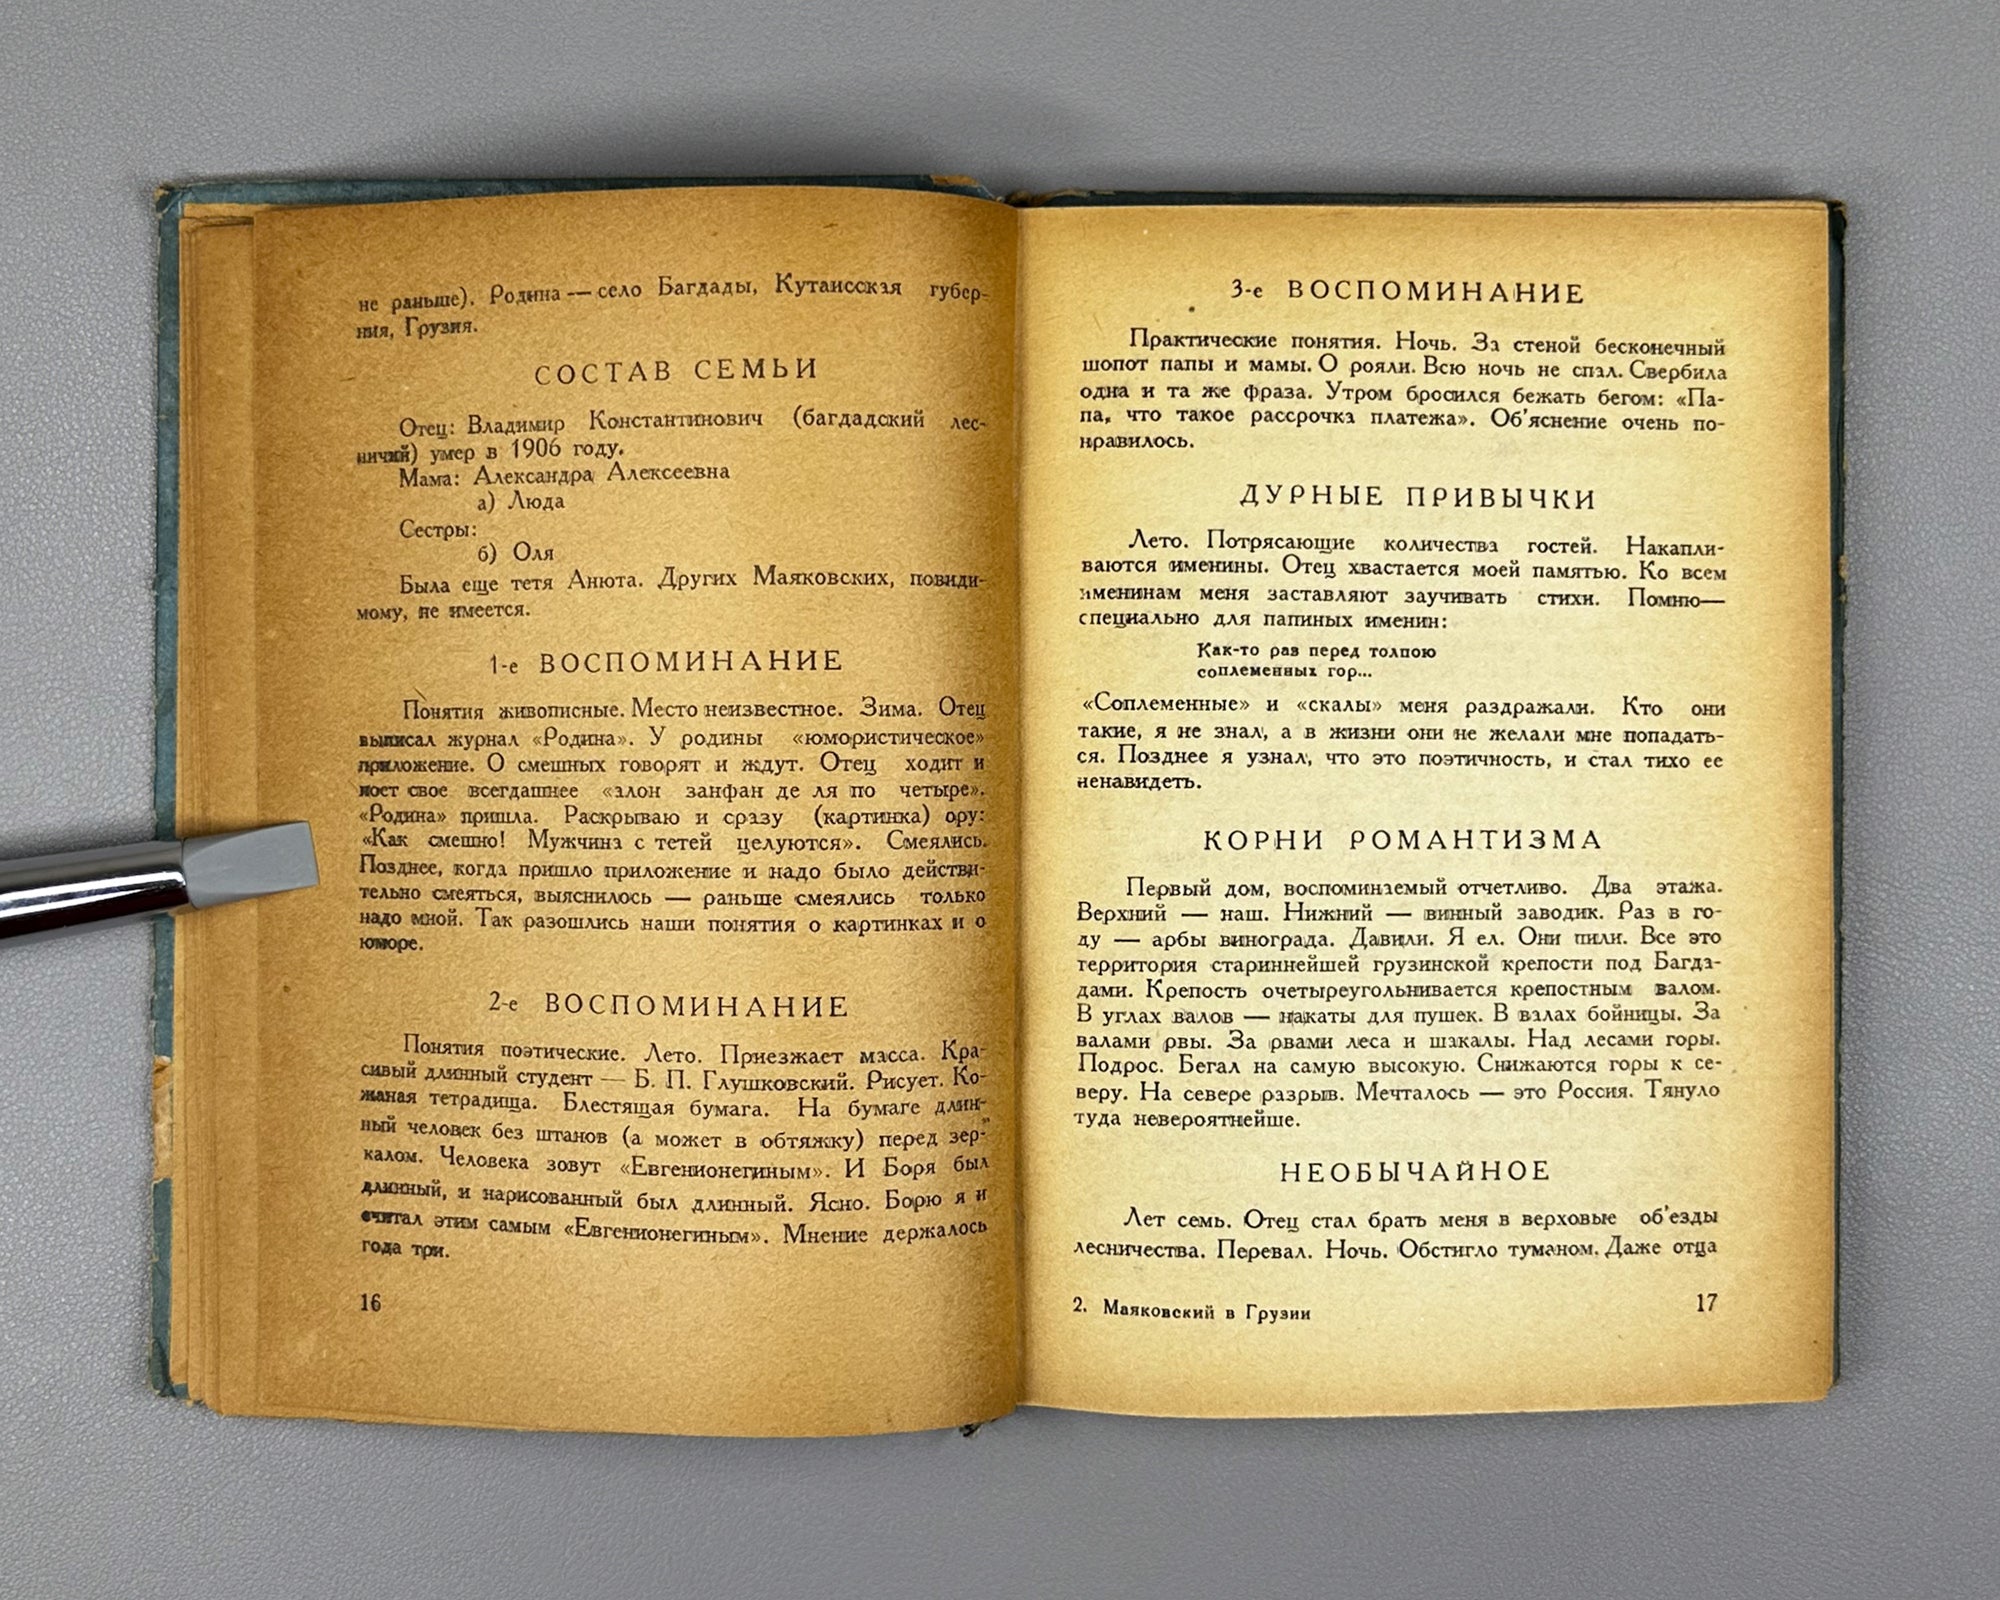 не раньше). Родина — село Багдады, Кутаисская губер-
ния, Грузия.
СОСТАВ СЕМЬИ
Отец: Владимир Константинович (багдадский лес-
ничий) умер в 1906 году.
Мама: Александра Алексеевна
а) Люда
Сестры:
б) Оля
Была еще тетя Анюта. Других Маяковских, повиди-
мому, не имеется.
1-е ВОСПОМИНАНИЕ
Понятия живописные. Место неизвестное. Зима. Отец
выписал журнал «Родина». У родины «юмористическое»
приложение. О смешных говорят и ждут. Отец ходит и
поет свое всегдашнее «алон занфан де ля по четыре».
«Родина» пришла. Раскрываю и сразу (картинка) ору:
«Как смешно! Мужчина с тетей целуются». Смеялись.
Позднее, когда пришло приложение и надо было действи-
тельно смеяться, выяснилось — раньше смеялись только
надо мной. Так разошлись наши понятия о картинках и о
юморе.
2-е ВОСПОМИНАНИЕ
Понятия поэтические. Лето. Приезжает масса. Кра-
сивый длинный студент — Б. П. Глушковский. Рисует. Ко-
жаная тетрадища. Блестящая бумага. На бумаге длин-
ный человек без штанов (а может в обтяжку) перед зер-
калом. Человека зовут «Евгенионегиным». И Боря был
длинный, и нарисованный был длинный. Ясно. Борю я и
считал этим самым «Евгенионегиным». Мнение держалось
года три.
16
3-е ВОСПОМИНАНИЕ
Практические понятия. Ночь. За стеной бесконечный
шопот папы и мамы. О рояли. Всю ночь не спал. Свербила
одна и та же фраза. Утром бросился бежать бегом: «Па-
па, что такое рассрочка платежа». Об'яснение очень по-
нравилось.
ДУРНЫЕ ПРИВЫЧКИ
Лето. Потрясающие количества гостей. Накапли-
ваются именины. Отец хвастается моей памятью. Ко всем
именинам меня заставляют заучивать стихи. Помню—
специально для папиных именин:
Как-то раз перед толпою
соплеменных гор...
«Соплеменные» и «скалы» меня раздражали. Кто они
такие, я не знал, а в жизни они не желали мне попадать-
ся. Позднее я узнал, что это поэтичность, и стал тихо ее
ненавидеть.
КОРНИ РОМАНТИЗМА
Первый дом, воспоминаемый отчетливо. Два этажа.
Верхний — наш. Нижний — винный заводик. Раз в го-
ду — арбы винограда. Давили. Я ел. Они пили. Все это
территория стариннейшей грузинской крепости под Багда-
дами. Крепость очетыреугольнивается крепостным валом.
В углах валов — накаты для пушек. В валах бойницы. За
валами рвы. За рвами леса и шакалы. Над лесами горы.
Подрос. Бегал на самую высокую. Снижаются горы к се-
веру. На севере разрыв. Мечталось — это Россия. Тянуло
туда невероятнейше.
НЕОБЫЧАЙНОЕ
Лет семь. Отец стал брать меня в верховые об'езды
лесничества. Перевал. Ночь. Обстигло туманом. Даже отца
2. Маяковский в Грузии
17